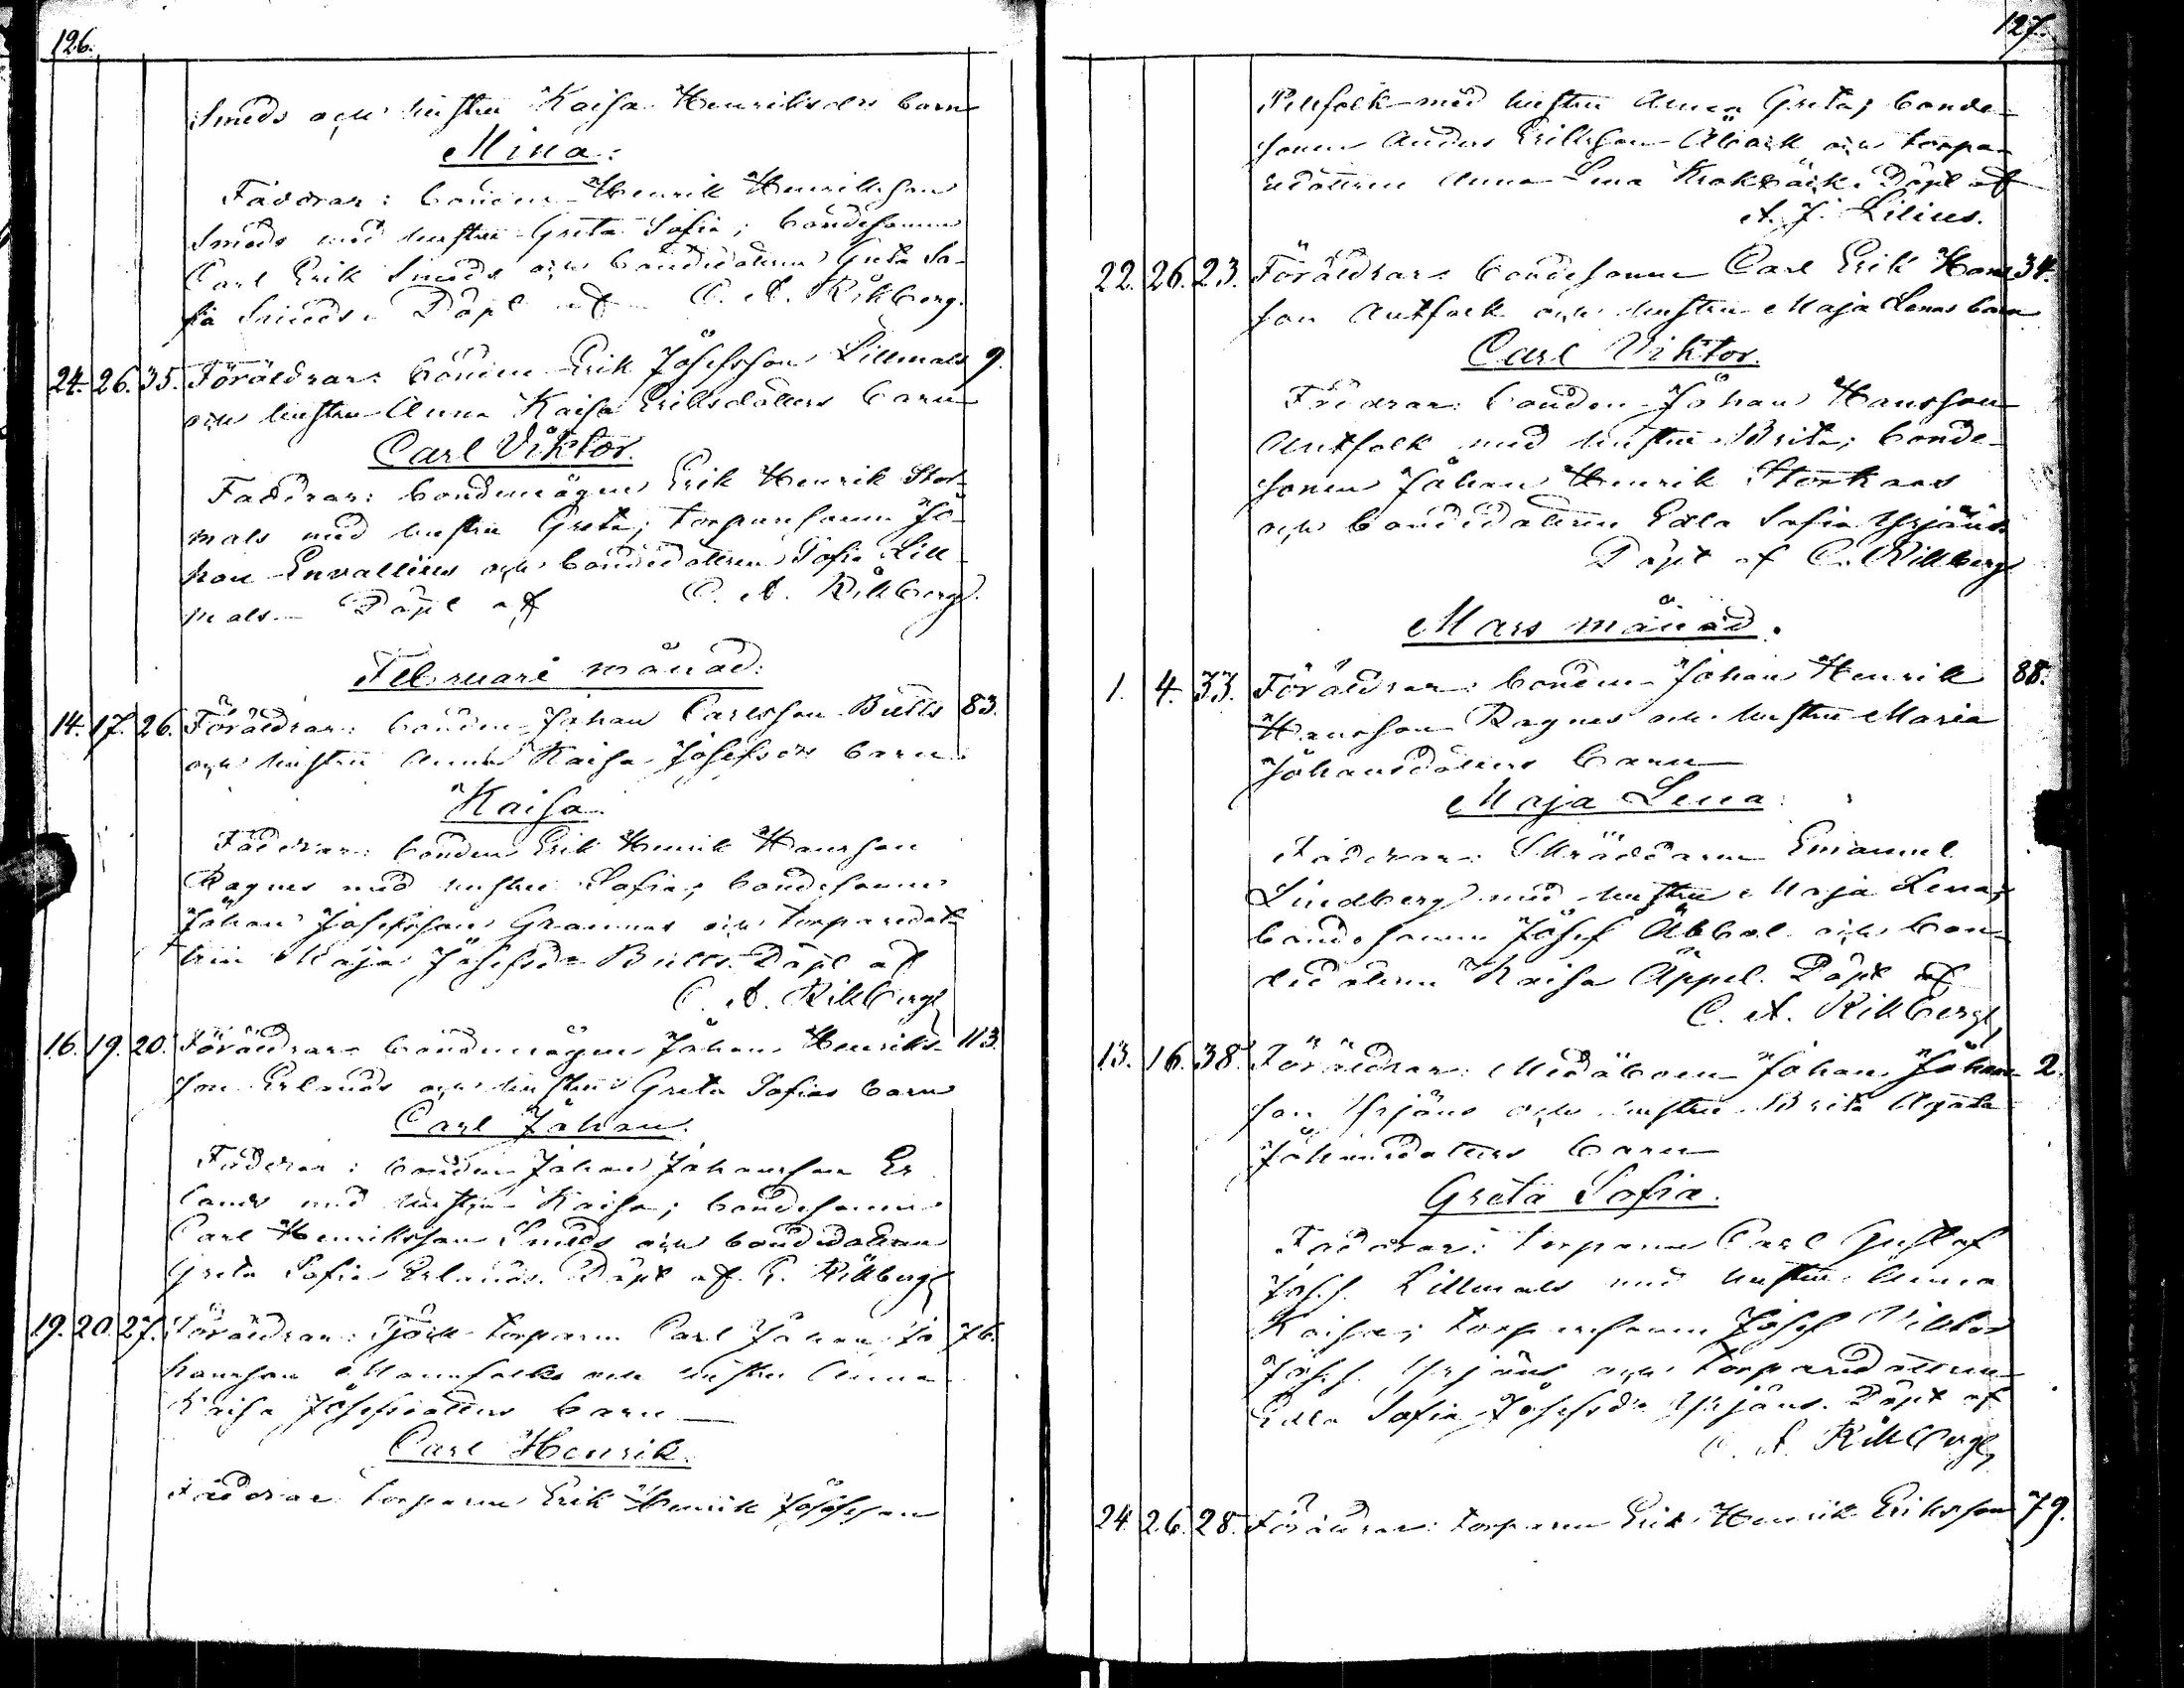 126.
Smeds och hustru Kaisa Henriksdrs barn
Mina.
Faddrar: bonden Henrik Henriksson
Smeds med hustru Greta Sofia; bondesonen
Carl Erik Smeds och bondedottren Greta So-
fia Smeds. Döpt af C. A. Rikberg.
24. 26. 35. Föräldrar: bonden Erik Josefsson Lillmals 9.
och hustru Anna Kaisa Eriksdotters barn
Carl Viktor.
Faddrar: bondemågen Erik Henrik Stor-
mals med hustru Greta; torparesonen Jo-
han Envallius och bondedottren Sofia Lill-
mals. Döpt af C. A. Rikberg.
Februari månad.
14. 17. 26. Föräldrar: bonden Johan Carlsson Butts 83.
och hustru Anna Kaisa Josefsdrs barn
Kaisa
Faddrar: bonden Erik Henrik Hansson
Ragnes med hustru Sofia; bondesonen
Johan Josefsson Grannas och torparedot-
trin Maja Josefsdr Butts. Döpt af
C. A. Rikberg
16. 19. 20. Föräldrar: bondemågen Johan Henriks- 113.
son Erlands och hustru Greta Sofias barn
Carl Johan.
Faddrar: bonden Johan Johansson Er-
lands med hustru Kaisa; bondesonen
Carl Henriksson Smeds och bondedottren
Greta Sofia Erlands. Döpt af C. Rikberg
19. 20. 27. Föräldrar: torparen Carl Johan Jo- 76.
hansson Mannfolks och hustru Anna
Kaisa Josefsdotters barn
Carl Henrik.
Faddrar torparen Erik Henrik Josefsson
127.
Pellfolk med hustru Anna Greta; bonde-
sonen Anders Eriksson Åback och torpa-
redottren Anna Lena Krokbäck. Döpt af
A. J. Lilius.
22. 26. 23. Föräldrar: bondesonen Carl Erik Hans- 34.
son Antfolk och hustru Maja Lenas barn
Carl Viktor.
Faddrar: bonden Johan Hansson
Antfolk med hustru Brita; bonde-
sonen Johan Henrik Storkars
och bondedottren Edla Sofia Yrjäns
Döpt af C. Rikberg
Mars månad.
1. 4. 33. Föräldrar: bonden Johan Henrik 88.
Hansson Ragnes och hustru Maria
Johansdotters barn
Maja Lena
Faddrar: Skräddaren Emanuel
Lindberg med hustru Maja Lena;
bondesonen Josef Äbbal och bon-
dedottren Kaisa Äppel. Döpt af
C. A. Rikberg
13. 16. 38. Föräldrar: Medåboen Johan Johans- 2.
son Yrjäns och hustru Brita Agata
Johansdotters barn
Greta Sofia.
Faddrar: torparen Carl Gustaf
Josefs. Lillmals med hustru Anna
Kaisa; torparesonen Josef Viktor
Josefs. Yrjäns och torparedottren
Edla Sofia Josefsdr Yrjäns. Döpt af
C. A. Rikberg
24. 26. 28. Föräldrar: torparen Erik Henrik Eriksson 79.